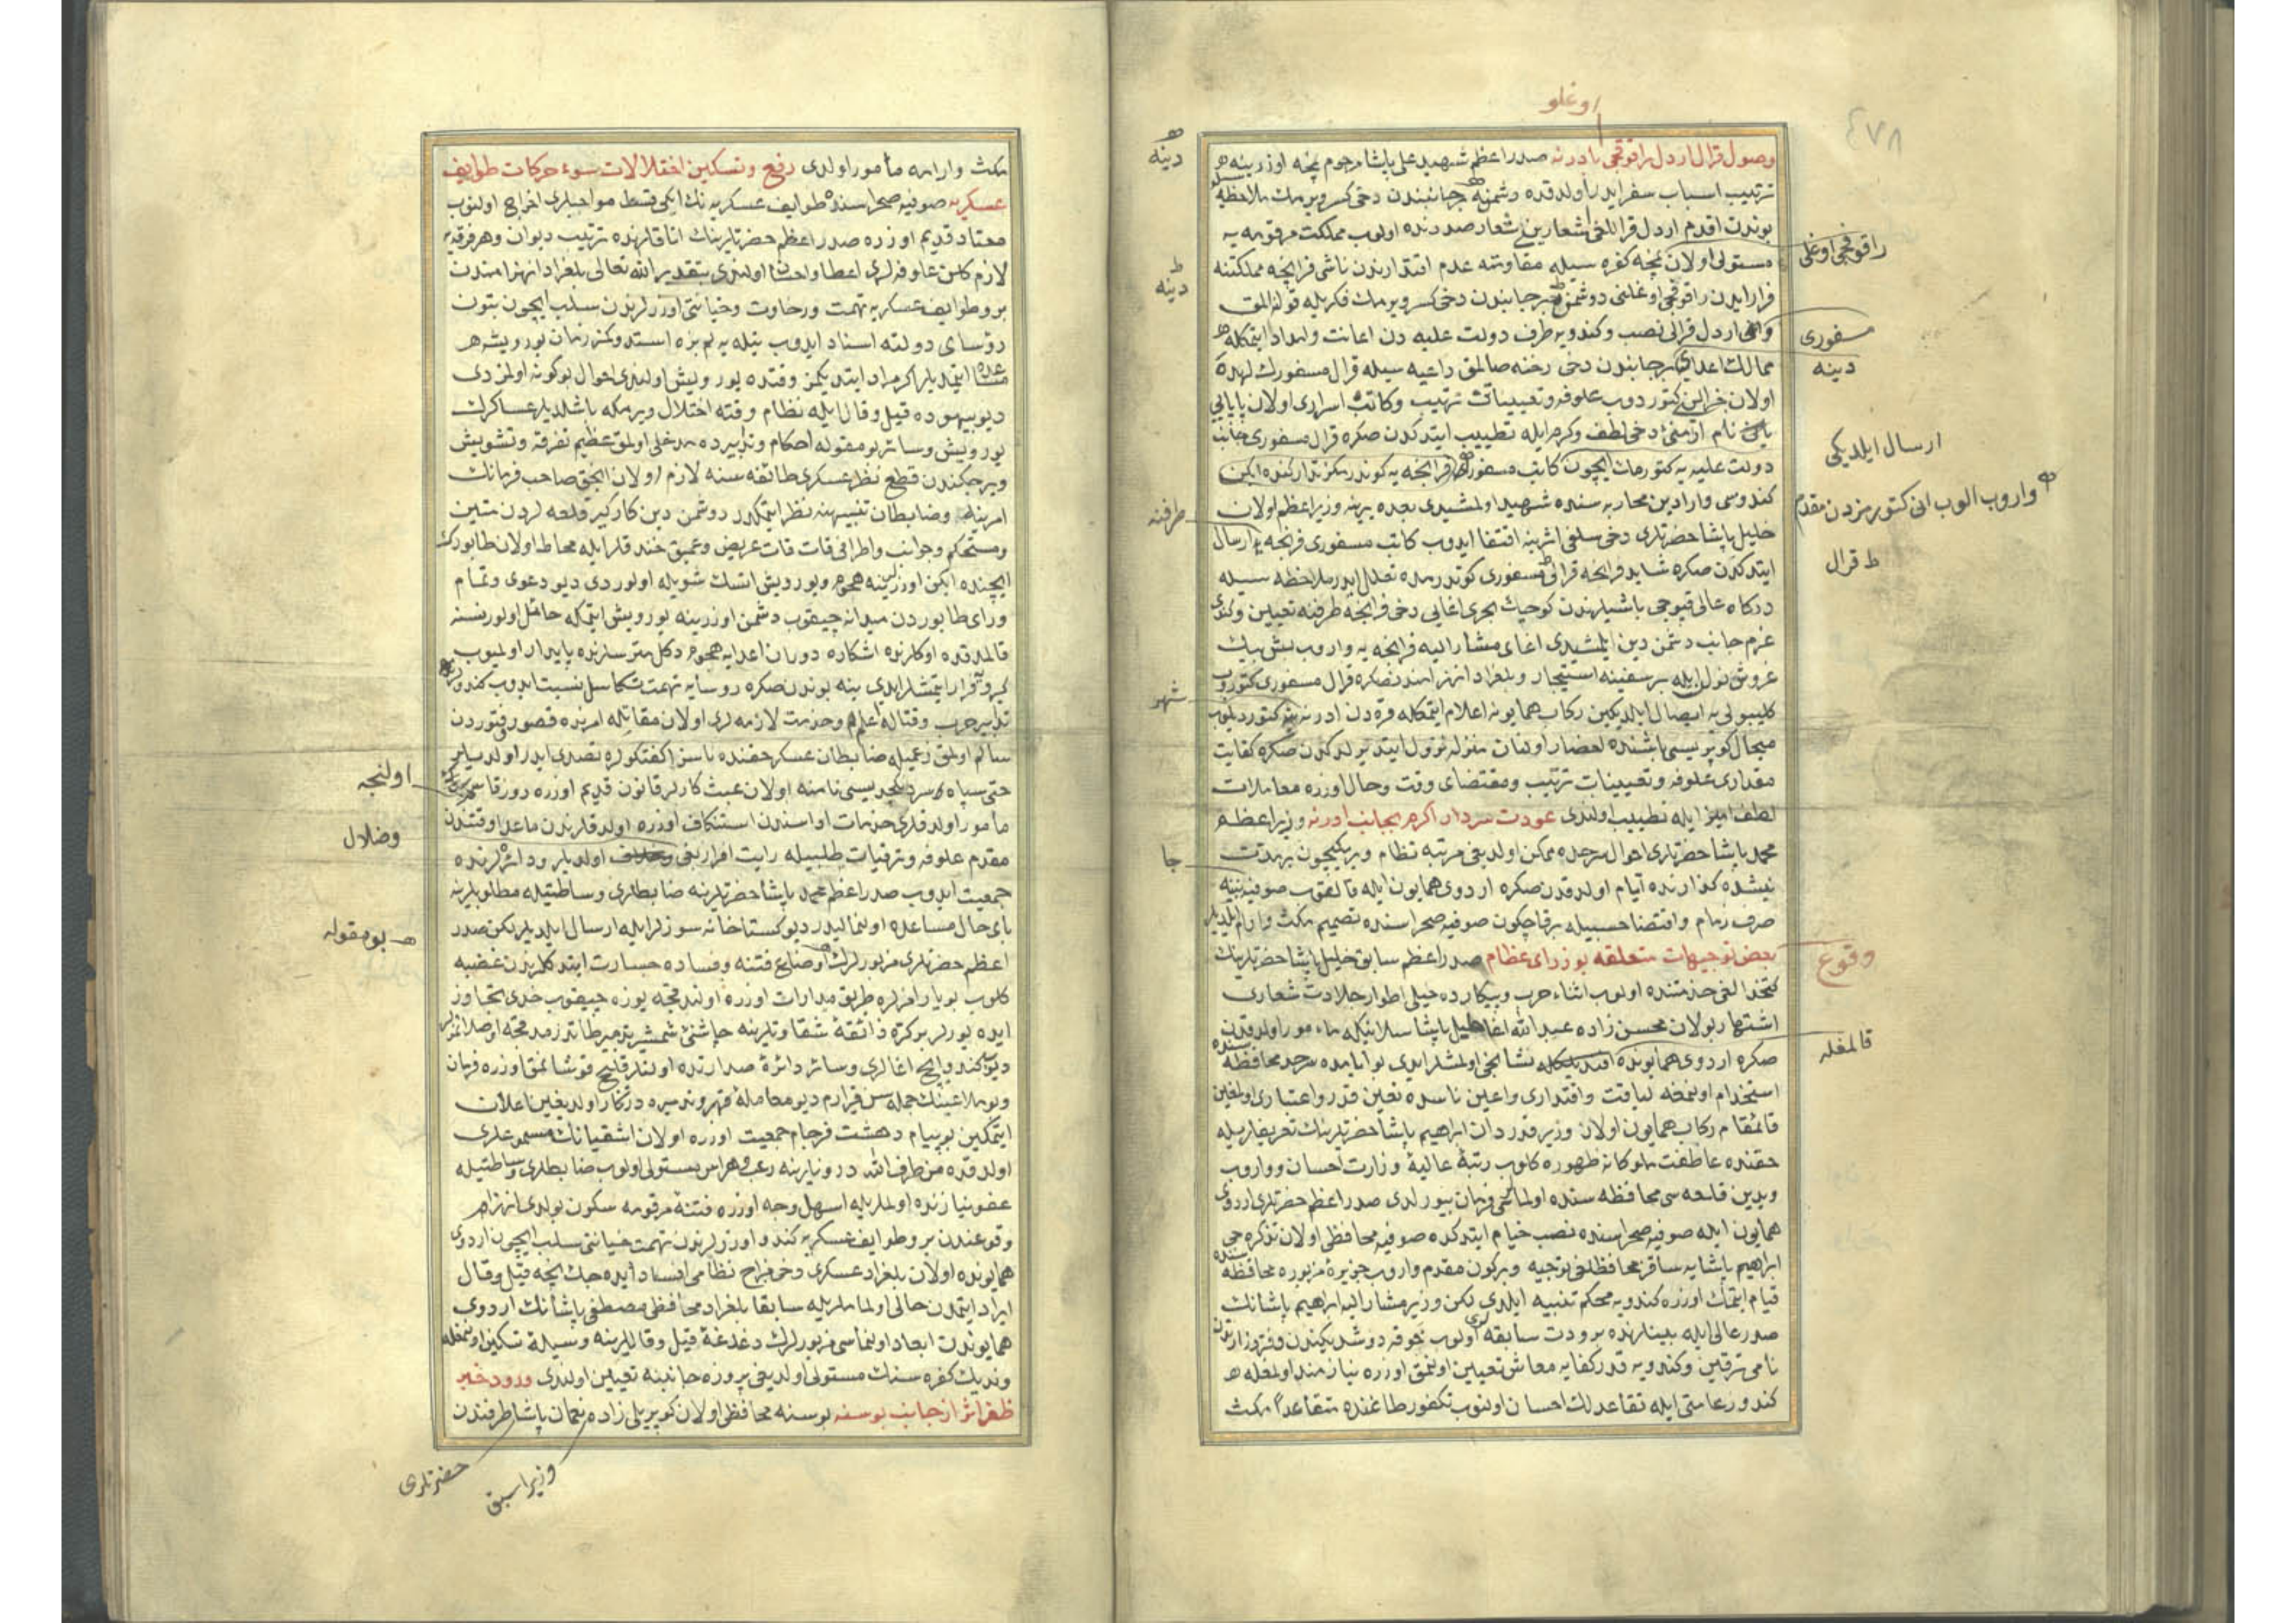 اوغلو
٤٧٨
وصول قرال اردل راقوقجی بادرنه صدر اعظم شهید علی پاشا مرحوم نچه اوزرینه
ترتیب اسباب سفر ایدر اولدقده دشمنه جانبندن دخی کسر ویرمك ملاحظه
بوندن اقدم اردل قراللغی اولوب مملکت مرقومه یه
مستولی اولان نمچه کفره سیله مقاومته عدم اقتدارندن ناشی فرانچه مملکتنه
فرار ایدن راقوقجی اوغلنی دوشمنه بر جانبندن دخی کسر ویرمك فکریله قوللانمق
اردل قرالی نصب وکندویه طرف دولت علیه دن اعانت وامداد ایتمکله
ممالك اعدایه بر جانبندن دخی رخنه صالمق داعیه سیله قرال مسفورك
اولان کتوردوب علوفه وتعیینات ترتیب وکاتب اسراری اولان پاپایی
نام ارمنی دخی لطف وکرم ایله تطییب ایتدکدن صکره قرال مسفوری جانب
دولت علیه یه کتورمك ایچون کاتب مسفور فرانچه یه کوندرمکز تدارکنده ایکن
کندوسی وارادین محاربه سنده شهید اولمشیدی بعده یرینه وزیر اعظم اولان
خلیل پاشا حضرتلری دخی سلفی اثرینه اقتفا ایدوب کاتب مسفوری فرانچه یه ارسال
ایتدکدن صکره شاید فرانچه قرالی مسفوری کوندرمده تعلل ایدر ملاحظه سیله
درکاه عالی قپوجی باشیلرندن کوچك بحری اغایی دخی فرانچه طرفنه تعیین وکندی
عزم جانب دشمن دین ایلمشیدی اغای مشار الیه فرانچه یه واروب بش بیك
غروش نول ایله بر سفینه استیجار وبلغراد انهزامندن صکره قرال مسفوری کتوروب
کلیبولی یه ایصال ایلدیکین رکاب همایونه اعلام ایتمکله قره دن ادرنه یه کتوردیلوب
میخال کوپریسی باشنده احضار اولنان منزله نزول ایتدیرلدکدن صکره کفایت
مقداری علوفه وتعیینات ترتیب ومقتضای وقت وحال اوزره معاملات
لطف امیز ایله تطییب اولندی عودت سردار اکرم بجانب ادرنه وزیر اعظم
محمد پاشا حضرتلری احوال سرحده ممکن اولدیغی مرتبه نظام ویرمکیچون بر مدت
نیشده کذارنده ایام اولدقدن صکره اردوی همایون ایله قالقوب صوفیه یه
صرف زمام واقتضا حسبیله بر قاچ کون صوفیه صحراسنده تصمیم مکث وارام ایلدیلر
بعض توجیهات متعلقه بوزرای عظام صدر اعظم سابق خلیل پاشا حضرتلرینك
کتخدالغی خدمتنده اولوب اثناء حرب وپیکارده خیلی اطوار جلادت شعاری
اشتهار بولان محسن زاده عبد الله اغا مأمور اولدقدن
صکره اردوی همایونده نشانجی اولمشلر ایدی بو ایامده سرحد محافظه سنده
استخدام اولنمغه لیاقت واقتداری واعین ناسده تعین قدر واعتباری اولمغین
قائمقام رکاب همایون اولان وزیر قدردان ابراهیم پاشا حضرتلرینك تعریفلریله
حقنده عاطفت ملوکانه ظهوره کلوب رتبۀ عالیۀ وزارت احسان وواروب
ودین قلعه سی محافظه سنده اولماسی فرمان بیورلدی صدر اعظم حضرتلری اردوی
همایون ایله صوفیه صحراسنده نصب خیام ایتدکده صوفیه محافظی اولان تذکره جی
ابراهیم پاشایه ساقز محافظلغی توجیه وبر کون مقدم واروب جزیرۀ مزبوره محافظه سنده
قیام ایتمك اوزره کندویه محکم تنبیه ایلدی لکن وزیر مشار الیه ابراهیم پاشانك
صدر عالی ایله بینلرنده برودت سابقه لری اولوب خوفه دوشدیکندن وفتوز
نامی ترقین وکندویه قدر کفایه معاش تعیین اولنمق اوزره نیازمند اولمغله
کندو زعامتی ایله تقاعدلك احسان اولنوب تکفور طاغنده متقاعداً مکث
دینه
دینه
طرفنه
شهر
جا
راقوقجی اوغلی
مسفوری
دینه
ارسال ایلدیکی
واروب الوب انی کتورمزدن مقدم
ط قرال
وقوع
قالمغله
مکث وارامه مأمور اولدی رفع وتسکین اختلالات سوء حرکات طوایف
عسکریه صوفیه صحراسنده طوایف عسکریه نك ایکی قسط مواجبلری اخراج اولنوب
معتاد قدیم اوزره صدر اعظم حضرتلرینك اتاقلرنده ترتیب دیوان وهر فرقه یه
لازم کلان علوفه لری اعطا واحسان اولندی بتقدیر الله تعالی بلغراد انهزامندن
برو طوایف عسکریه تهمت ورخاوت وخیانتی اوزرلرندن سلب ایچون بتون
رؤسای دولته اسناد ایدوب
دیو بیهوده قیل وقال ایله نظام وقته اختلال ویرمکه باشلدیلر عساکرك
یورویش وسائر بو مقوله احکام وتدابیرده مدخلی اولمق عظیم تفرقه وتشویش
ویرجکندن قطع نظر عسکری طائفه سنه لازم اولان انجق صاحب فرمانك
امرینه وضابطان تنبیهنه نظر ایتمکدر دوشمن دین کارکیر قلعه لردن متین
ومستحکم وجوانب واطرافی قات قات عریض وعمیق خندقلر ایله محاط اولان طابورك
ایچنده ایکن اوزرینه هجوم ویورویش اتسك شویله اولوردی دیو دعوی وتمام
ورای طابوردن میدانه چیقوب دشمن اوزرینه یورویش ایتمکه حائل اولور نسنه
قالمدقده اوکلرنده اشکاره دوران اعدایه هجوم دکل متریسلرنده پایدار اولمیوب
کیرو فرار ایتمشلر ایدی ینه بوندن صکره رؤسایه تهمت تکاسل نسبت ایدوب کندولری
تدابیر حرب وقتاله اعلم وخدمت لازمه لری اولان مقاتله امرنده قصور فتوردن
سالم اولمق زعمیله ضابطان عسکر حقنده ناسزا کفتکولره تصدی ایدر اولدیلر
حتی سپاه سردنکچدیسی نامنه اولان عبث کارلر قانون قدیم اوزره روز قاسم
مأمور اولدقلری خدمات اداسندن استنکاف اوزره اولدقلرندن ماعدا وقتندن
مقدم علوفه وترقیات طلبیله رایت افراز بغی اولدیلر ودائره لرنده
جمعیت ایدوب صدر اعظم محمد پاشا حضرتلرینه ضابطلری وساطتیله مطلوبلرینه
بای حال مساعده اولنمالیدر دیو کستاخانه سوزلر ایله ارسال ایلدیلر لکن صدر
اعظم حضرتلری مزبورلرك اوضاع فتنه وفساده جسارت ایتدکلرندن غضبه
کلوب بو یارامزلره طریق مدارات اوزره اولندقجه یوزه چیقوب حدی تجاوز
ایده یورلر بر کره ذائقۀ شقاوتلرینه چاشنئ شمشیر
دیو کندو ایچ اغالری وسائر دائرۀ صدارتده اولنلر قلیچ قوشانمق اوزره فرمان
وبو ملاعینك جمله سن قیرارم دیو معاملۀ قهر وتدمیره درکار اولدیغین اعلان
ایتمکین بو پیام دهشت فرجام جمعیت اوزره اولان اشقیانك مسموعلری
اولدقده من طرف الله درونلرینه رعب وهراس مستولی اولوب ضابطلری وساطتیله
عفو نیازنده اولملریله اسهل وجه اوزره فتنۀ مرقومه سکون بولدی انهزام
وقوعندن برو طوایف عسکریه کندو اوزرلرندن تهمت خیانتی سلب ایچون اردوی
همایونده اولان بلغراد عسکری دخی مزاج نظامی افساد ایده جك انجه قیل وقال
ایراد ایتمدن خالی اولماملریله سابقا بلغراد محافظی مصطفی پاشانك اردوی
همایوندن ابعاد اولنماسی مزبورلرك دغدغۀ قیل وقاللرینه وسیلۀ تسکین اولنمغله
وندیك کفره سنك مستولی اولدیغی پروزه جانبنه تعیین اولندی ورود خبر
ظفر اثر از جانب بوسنه بوسنه محافظی اولان کوپریلی زاده نعمان پاشا طرفندن
اولنجه
وضلال
بو مقوله
حضرتلری
وزیر اسبق